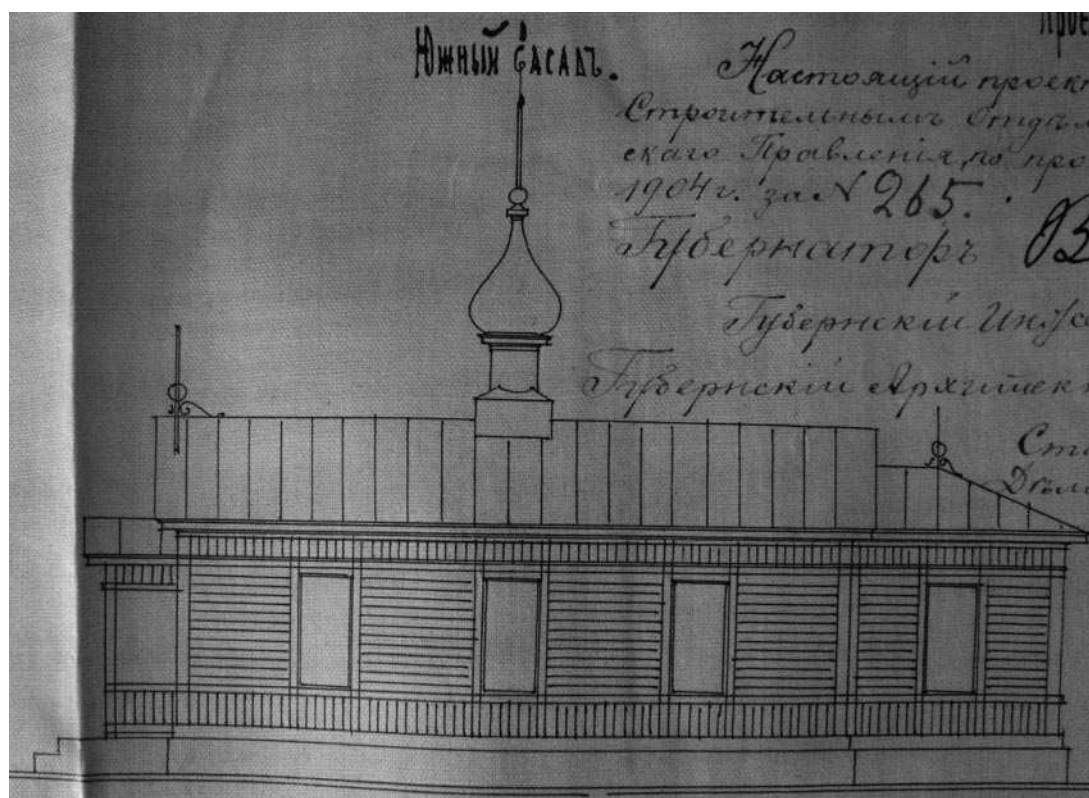 Южный Фасадъ.
Прое
Настоящій проек
Строительнымъ Отдѣл
скаго Правленія, по про
1904 г. за № 265.
Губернаторъ
Губернскій Инж
Губернскій Архитек
Ст
Дѣл